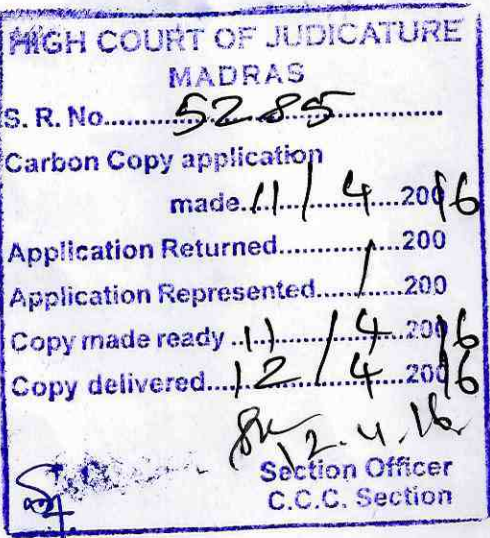 HIGH COURT OF JUDICATURE
MADRAS
S. R. No. 5285
Carbon Copy application
made 11/4 2016
Application Returned 200
Application Represented / 200
Copy made ready 11/4 2016
Copy delivered 12/4 2016
12.4.16
Section Officer
C.C.C. Section